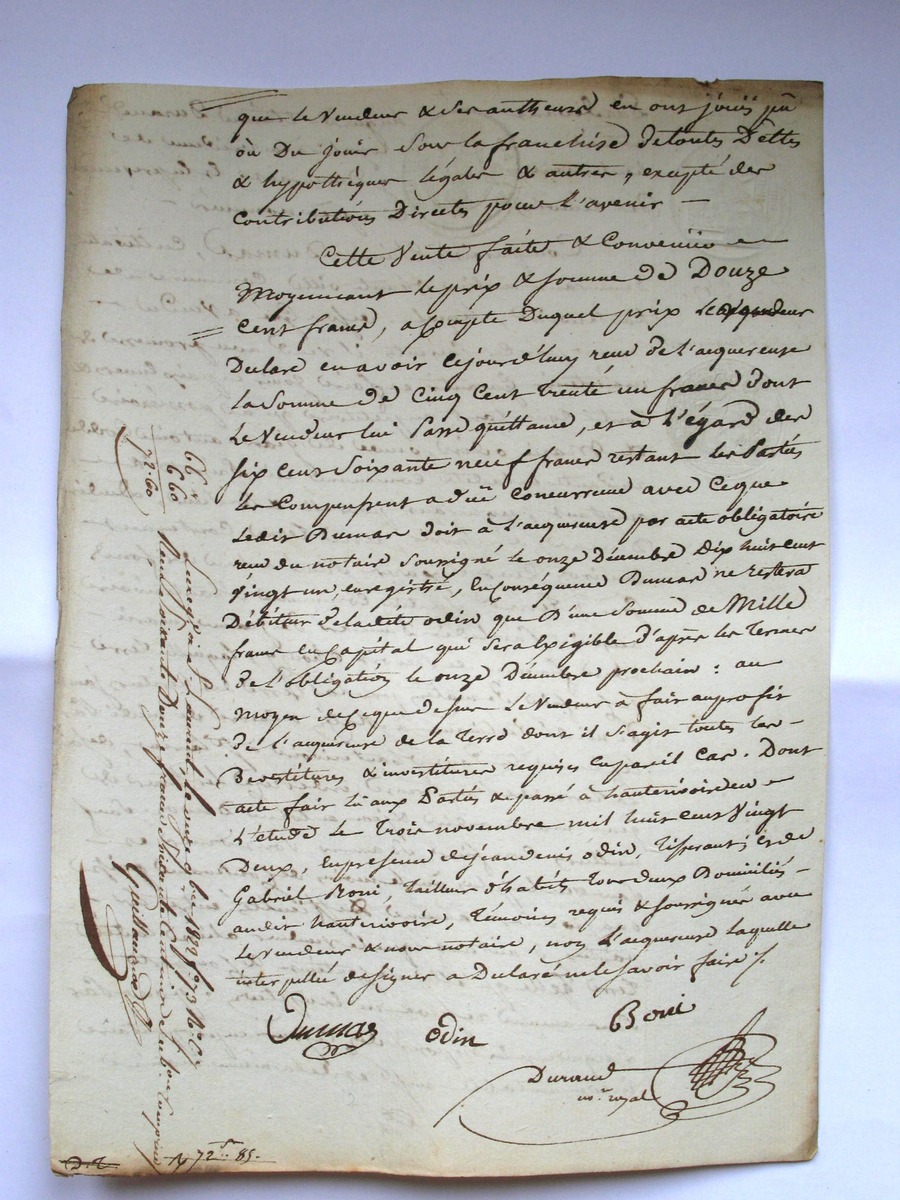 que le Vendeur & ses autheurs en ont jouis pû
ou Du jouir sous la franchise de toutes Dettes
& hypothêques légales & autres, excepté des
Contributions Directes pour l'avenir —
Cette Vente faite & Convenüe
Moyennant le prix & somme de Douze
Cent francs, a Compte Duquel prix le Vendeur
Declare en avoir cejourd'huy reçu de l'acquereuse
la somme de Cinq Cent trente un francs dont
le Vendeur lui Passe quittance, et à l'égard des
Six Cent Soixante neuf francs restant les Parties
les Compensent a dûe Concurrence avec Ceque
ledit Dumas doit à l'acquereuse par acte obligatoire
reçu du notaire soussigné le onze Décembre Dix huit cent
Vingt un, enregistré, En Conséquence Dumas ne restera
Débiteur de la dite odin que D'une Somme de Mille
francs en Capital qui sera Exigible d'après les Termes
de l'obligation le onze Décembre prochain : au
moyen de Ceque dessus le Vendeur à fait au profit
de l'acquereuse de la Terre dont il s'agit toutes les —
Devestitures & investitures requises en pareil Cas. Dont
acte fait lû aux Parties & passé à hauterivoire en
L'etude le Trois novembre mil huit cent Vingt
Deux, En presence de jean denis odin, Tisserant, Et de
Gabriel Boni, tailleur d'habits tous deux Domiciliés
audit hauterivoire, Témoins requis & soussignés avec
le Vendeur & nous notaire, non l'acquereuse laquelle
interpellée de signer a Declaré ne le savoir faire /.
Dumas
odin
Boni
Durand
no.re royal
66
6.60
72.60
Enregistré à St Laurent, le onze 9bre 1822 f° 73
Reçu soixante Douze francs soixante Centimes
Guillaume
72 85.